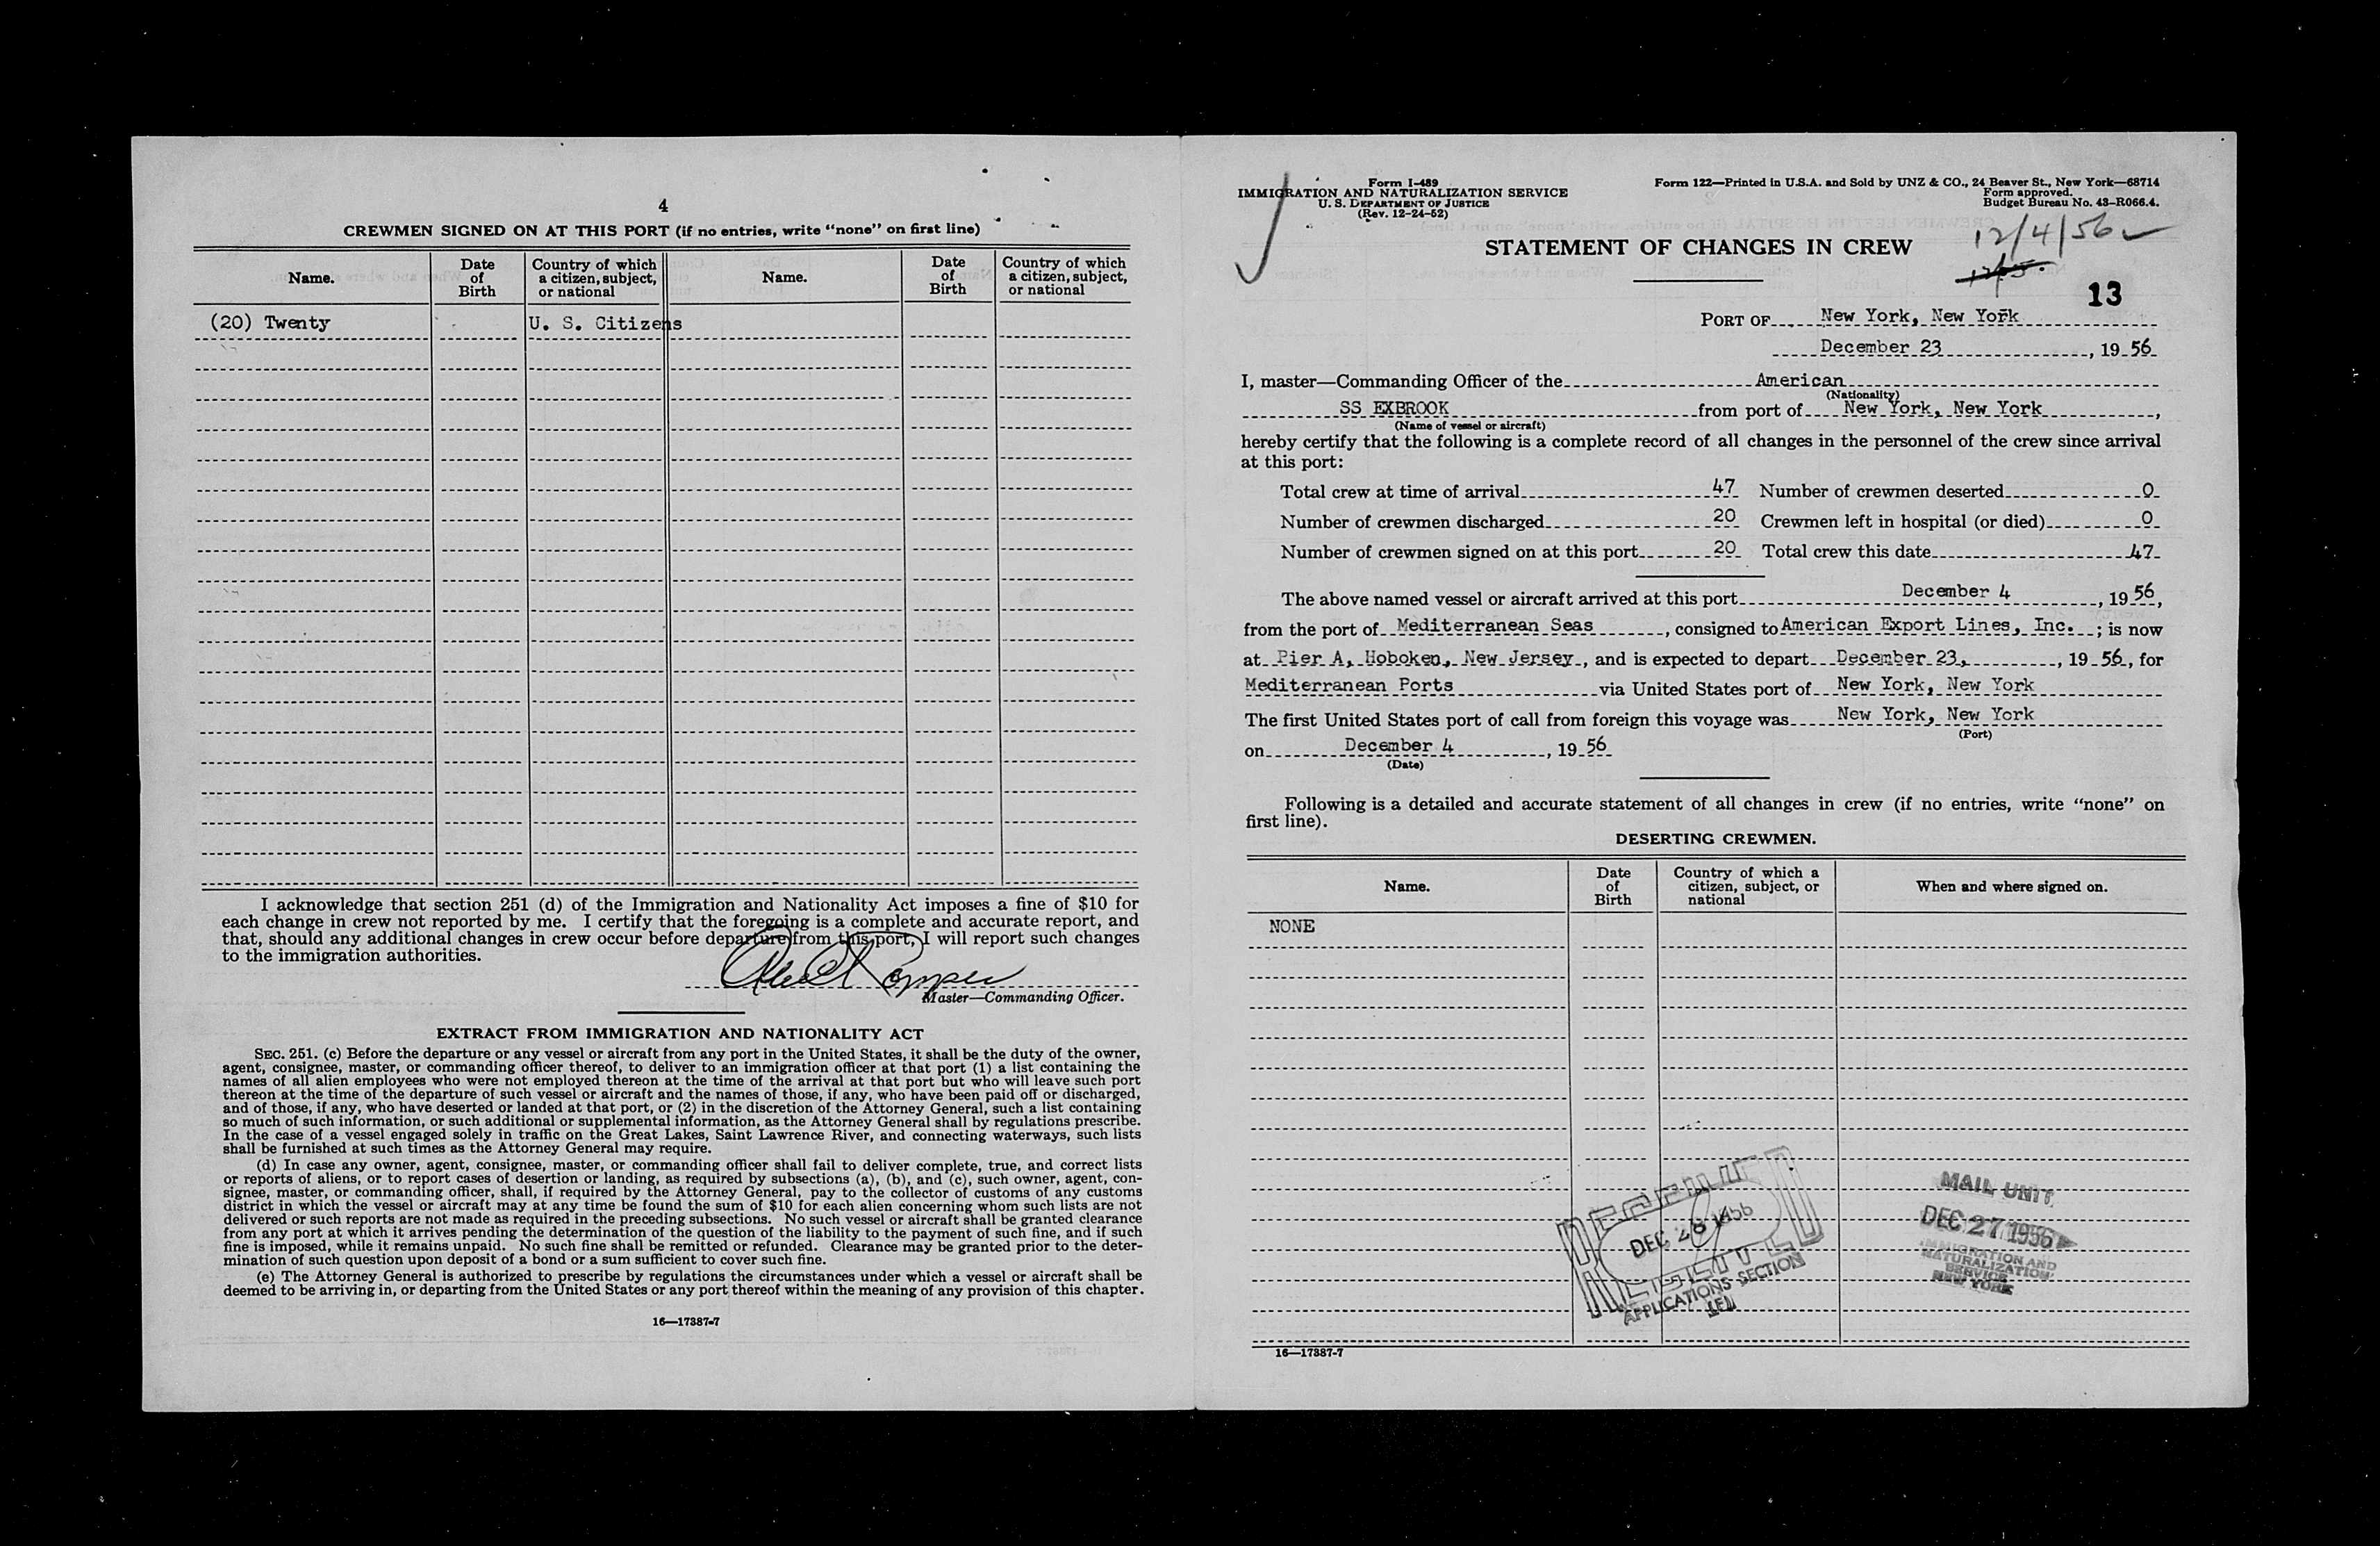 4
CREWMEN SIGNED ON AT THIS PORT (if no entries, write “none” on first line)
Name.
Date of Birth
Country of which a citizen, subject, or national
Name.
Date of Birth
Country of which a citizen, subject, or national
(20) Twenty U. S. Citizens
I acknowledge that section 251 (d) of the Immigration and Nationality Act imposes a fine of $10 for
each change in crew not reported by me. I certify that the foregoing is a complete and accurate report, and
that, should any additional changes in crew occur before departure from this port, I will report such changes
to the immigration authorities.
Master—Commanding Officer.
EXTRACT FROM IMMIGRATION AND NATIONALITY ACT
SEC. 251. (c) Before the departure or any vessel or aircraft from any port in the United States, it shall be the duty of the owner,
agent, consignee, master, or commanding officer thereof, to deliver to an immigration officer at that port (1) a list containing the
names of all alien employees who were not employed thereon at the time of the arrival at that port but who will leave such port
thereon at the time of the departure of such vessel or aircraft and the names of those, if any, who have been paid off or discharged,
and of those, if any, who have deserted or landed at that port, or (2) in the discretion of the Attorney General, such a list containing
so much of such information, or such additional or supplemental information, as the Attorney General shall by regulations prescribe.
In the case of a vessel engaged solely in traffic on the Great Lakes, Saint Lawrence River, and connecting waterways, such lists
shall be furnished at such times as the Attorney General may require.
(d) In case any owner, agent, consignee, master, or commanding officer shall fail to deliver complete, true, and correct lists
or reports of aliens, or to report cases of desertion or landing, as required by subsections (a), (b), and (c), such owner, agent, con-
signee, master, or commanding officer, shall, if required by the Attorney General, pay to the collector of customs of any customs
district in which the vessel or aircraft may at any time be found the sum of $10 for each alien concerning whom such lists are not
delivered or such reports are not made as required in the preceding subsections. No such vessel or aircraft shall be granted clearance
from any port at which it arrives pending the determination of the question of the liability to the payment of such fine, and if such
fine is imposed, while it remains unpaid. No such fine shall be remitted or refunded. Clearance may be granted prior to the deter-
mination of such question upon deposit of a bond or a sum sufficient to cover such fine.
(e) The Attorney General is authorized to prescribe by regulations the circumstances under which a vessel or aircraft shall be
deemed to be arriving in, or departing from the United States or any port thereof within the meaning of any provision of this chapter.
16—17387-7
Form I-489
IMMIGRATION AND NATURALIZATION SERVICE
U. S. DEPARTMENT OF JUSTICE
(Rev. 12-24-52)
Form 122—Printed in U.S.A. and Sold by UNZ & CO., 24 Beaver St., New York—68714
Form approved.
Budget Bureau No. 43-R066.4.
12/4/56
STATEMENT OF CHANGES IN CREW
13
PORT OF New York, New York
December 23, 19 56
I, master—Commanding Officer of the American
(Nationality)
SS EXBROOK from port of New York, New York,
(Name of vessel or aircraft)
hereby certify that the following is a complete record of all changes in the personnel of the crew since arrival
at this port:
Total crew at time of arrival 47 Number of crewmen deserted 0
Number of crewmen discharged 20 Crewmen left in hospital (or died) 0
Number of crewmen signed on at this port 20 Total crew this date 47
The above named vessel or aircraft arrived at this port December 4, 19 56,
from the port of Mediterranean Seas, consigned to American Export Lines, Inc.; is now
at Pier A, Hoboken, New Jersey, and is expected to depart December 23, , 19 56, for
Mediterranean Ports via United States port of New York, New York
The first United States port of call from foreign this voyage was New York, New York
(Port)
on December 4, 19 56
(Date)
Following is a detailed and accurate statement of all changes in crew (if no entries, write “none” on
first line).
DESERTING CREWMEN.
Name.
Date of Birth
Country of which a citizen, subject, or national
When and where signed on.
NONE
DEC 28 1956
APPLICATIONS SECTION
MAIL UNIT
DEC 27 1956
IMMIGRATION AND
NATURALIZATION
SERVICE
NEW YORK
16—17387-7